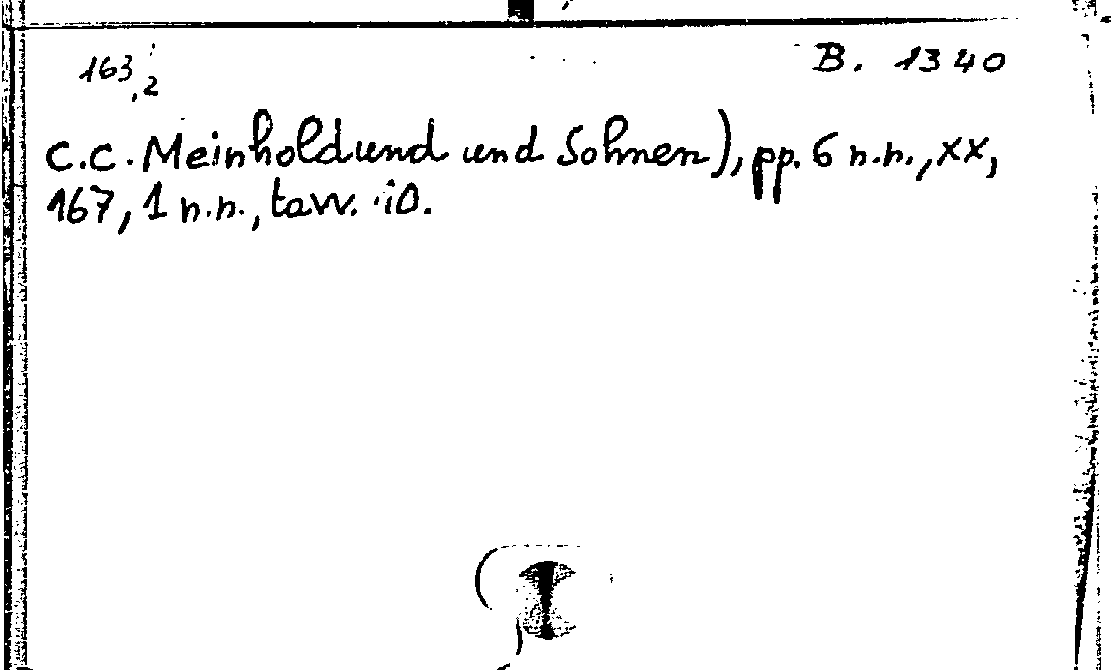 163,2
B. 1340
C.C. Meinholdund und Sohnen), pp. 6 n.n., XX,
167, 1 n.n., tavv. 10.